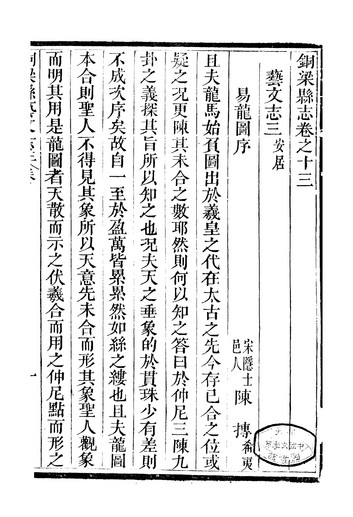 銅梁縣志卷之十三
藝文志三 安居
易龍圖序
宋隱士邑人陳摶希夷
且夫龍馬始負圖出於羲皇之代在太古之先今存已合之位或
疑之况更陳其未合之數耶然則何以知之答曰於仲尼三陳九
卦之義探其旨所以知之也况夫天之垂象的於貫珠少有差則
不成次序矣故自一至於盈萬皆累累然如絲之縷也且夫龍圖
本合則聖人不得見其象所以天意先未合而形其象聖人觀象
而明其用是龍圖者天散而示之伏羲合而用之仲尼點而形之
一